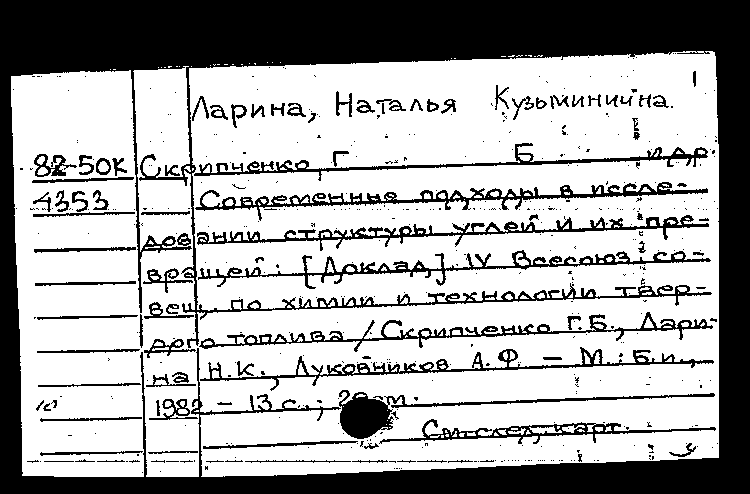 1
Ларина, Наталья Кузьминична.
82-50К Скрипченко, Г Б и др.
4353 Современные подходы в иссле-
довании структуры углей и их пре-
вращей: [Доклад] IV Всесоюз. со-
вещ. по химии и технологии твер-
дого топлива / Скрипченко Г.Б., Лари-
на Н.К., Луковников А.Ф. – М.: Б.и.,
1982 – 13 с.; см.
См. след. карт.